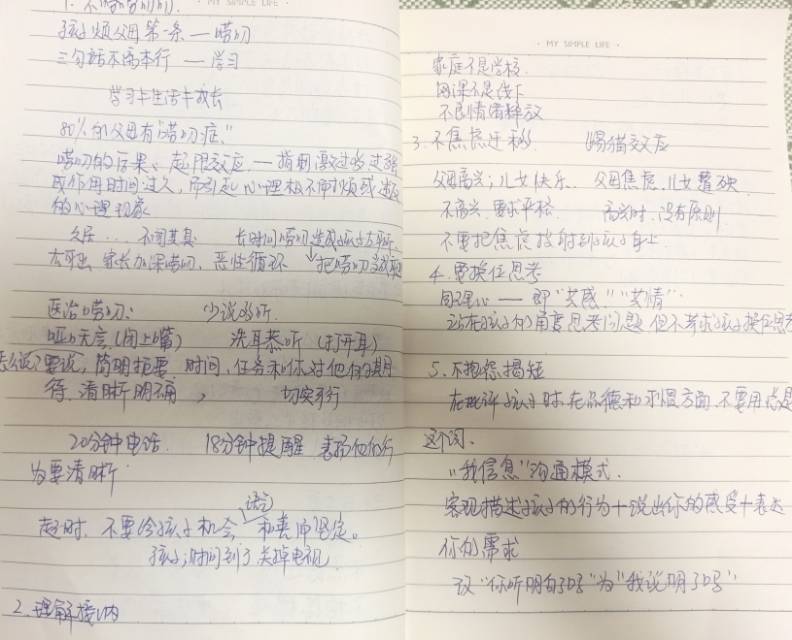 1. 不唠唠叨叨.
· MY SIMPLE LIFE ·
孩子烦父母第一条 — 唠叨
三句话不离本行 — 学习
学习+生活+成长
80%的父母有"唠叨症."
唠叨的后果、超限效应. — 指刺激过多过强
或作用时间过久,而引起心理极不耐烦或逆反
的心理现象
久居... 不闻其臭 长时间唠叨造成孩子左耳
右耳出 家长加深唠叨, 恶性循环 把唠叨当
医治唠叨、 少说多听.
哑口无言(闭上嘴) 洗耳恭听 (打开耳)
怎么说?要说,简明扼要 时间,任务和你对他们的期
待,清晰明确, 切实可行
20分钟电话. 18分钟提醒 表扬他们行
为要清晰.
语言
超时,不要给孩子机会 和善而坚定。
孩子;时间到了关掉电视.
2. 理解接纳
· MY SIMPLE LIFE ·
家庭不是学校.
网课不是线下
不良情绪释放
3. 不焦虑迁移. 踢猫效应
父母高兴;儿女快乐. 父母焦虑,儿女
不高兴.要求严格. 高兴时.没有原则
不要把焦虑投射到孩子身上.
4. 要换位思考
同理心 — 即"共感""共情".
站在孩子的角度思考问题 但不苛求孩子换位思考
5. 不抱怨揭短
在批评孩子时.在品德和习惯方面.不要用总是
这个词、
"我信息"沟通模式.
客观描述孩子的行为+说出你的感受+表达
你的需求
改"你听明白了吗"为"我说明了吗"